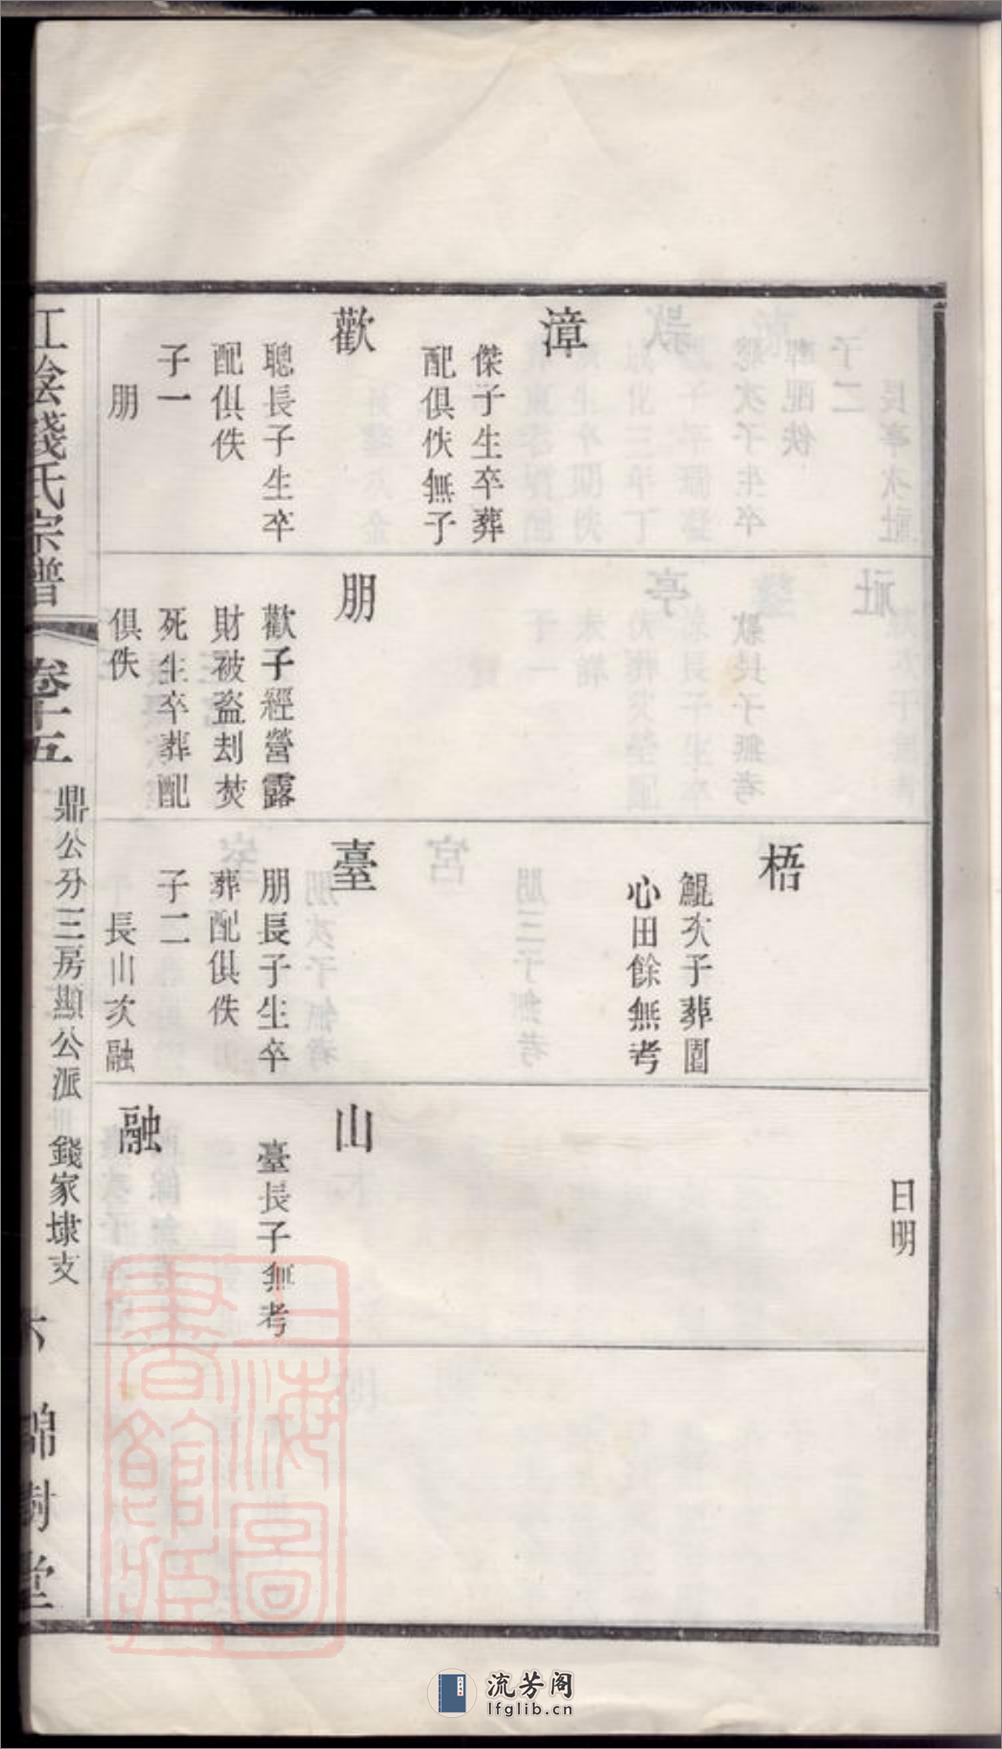 漳
傑子生卒葬
配俱佚無子
歡
聰長子生卒
配俱佚
子一
朋
朋
歡子經營露
財被盜刦焚
死生卒葬配
俱佚
梧
鯤次子葬園
心田餘無考
臺
朋長子生卒
葬配俱佚
子二
長山次融
日明
山
臺長子無考
融
江陰錢氏宗譜
卷十五
鼎公分三房顯公派 錢家埭支
六
錦樹堂
上海圖書館藏
流芳阁
lfglib.cn